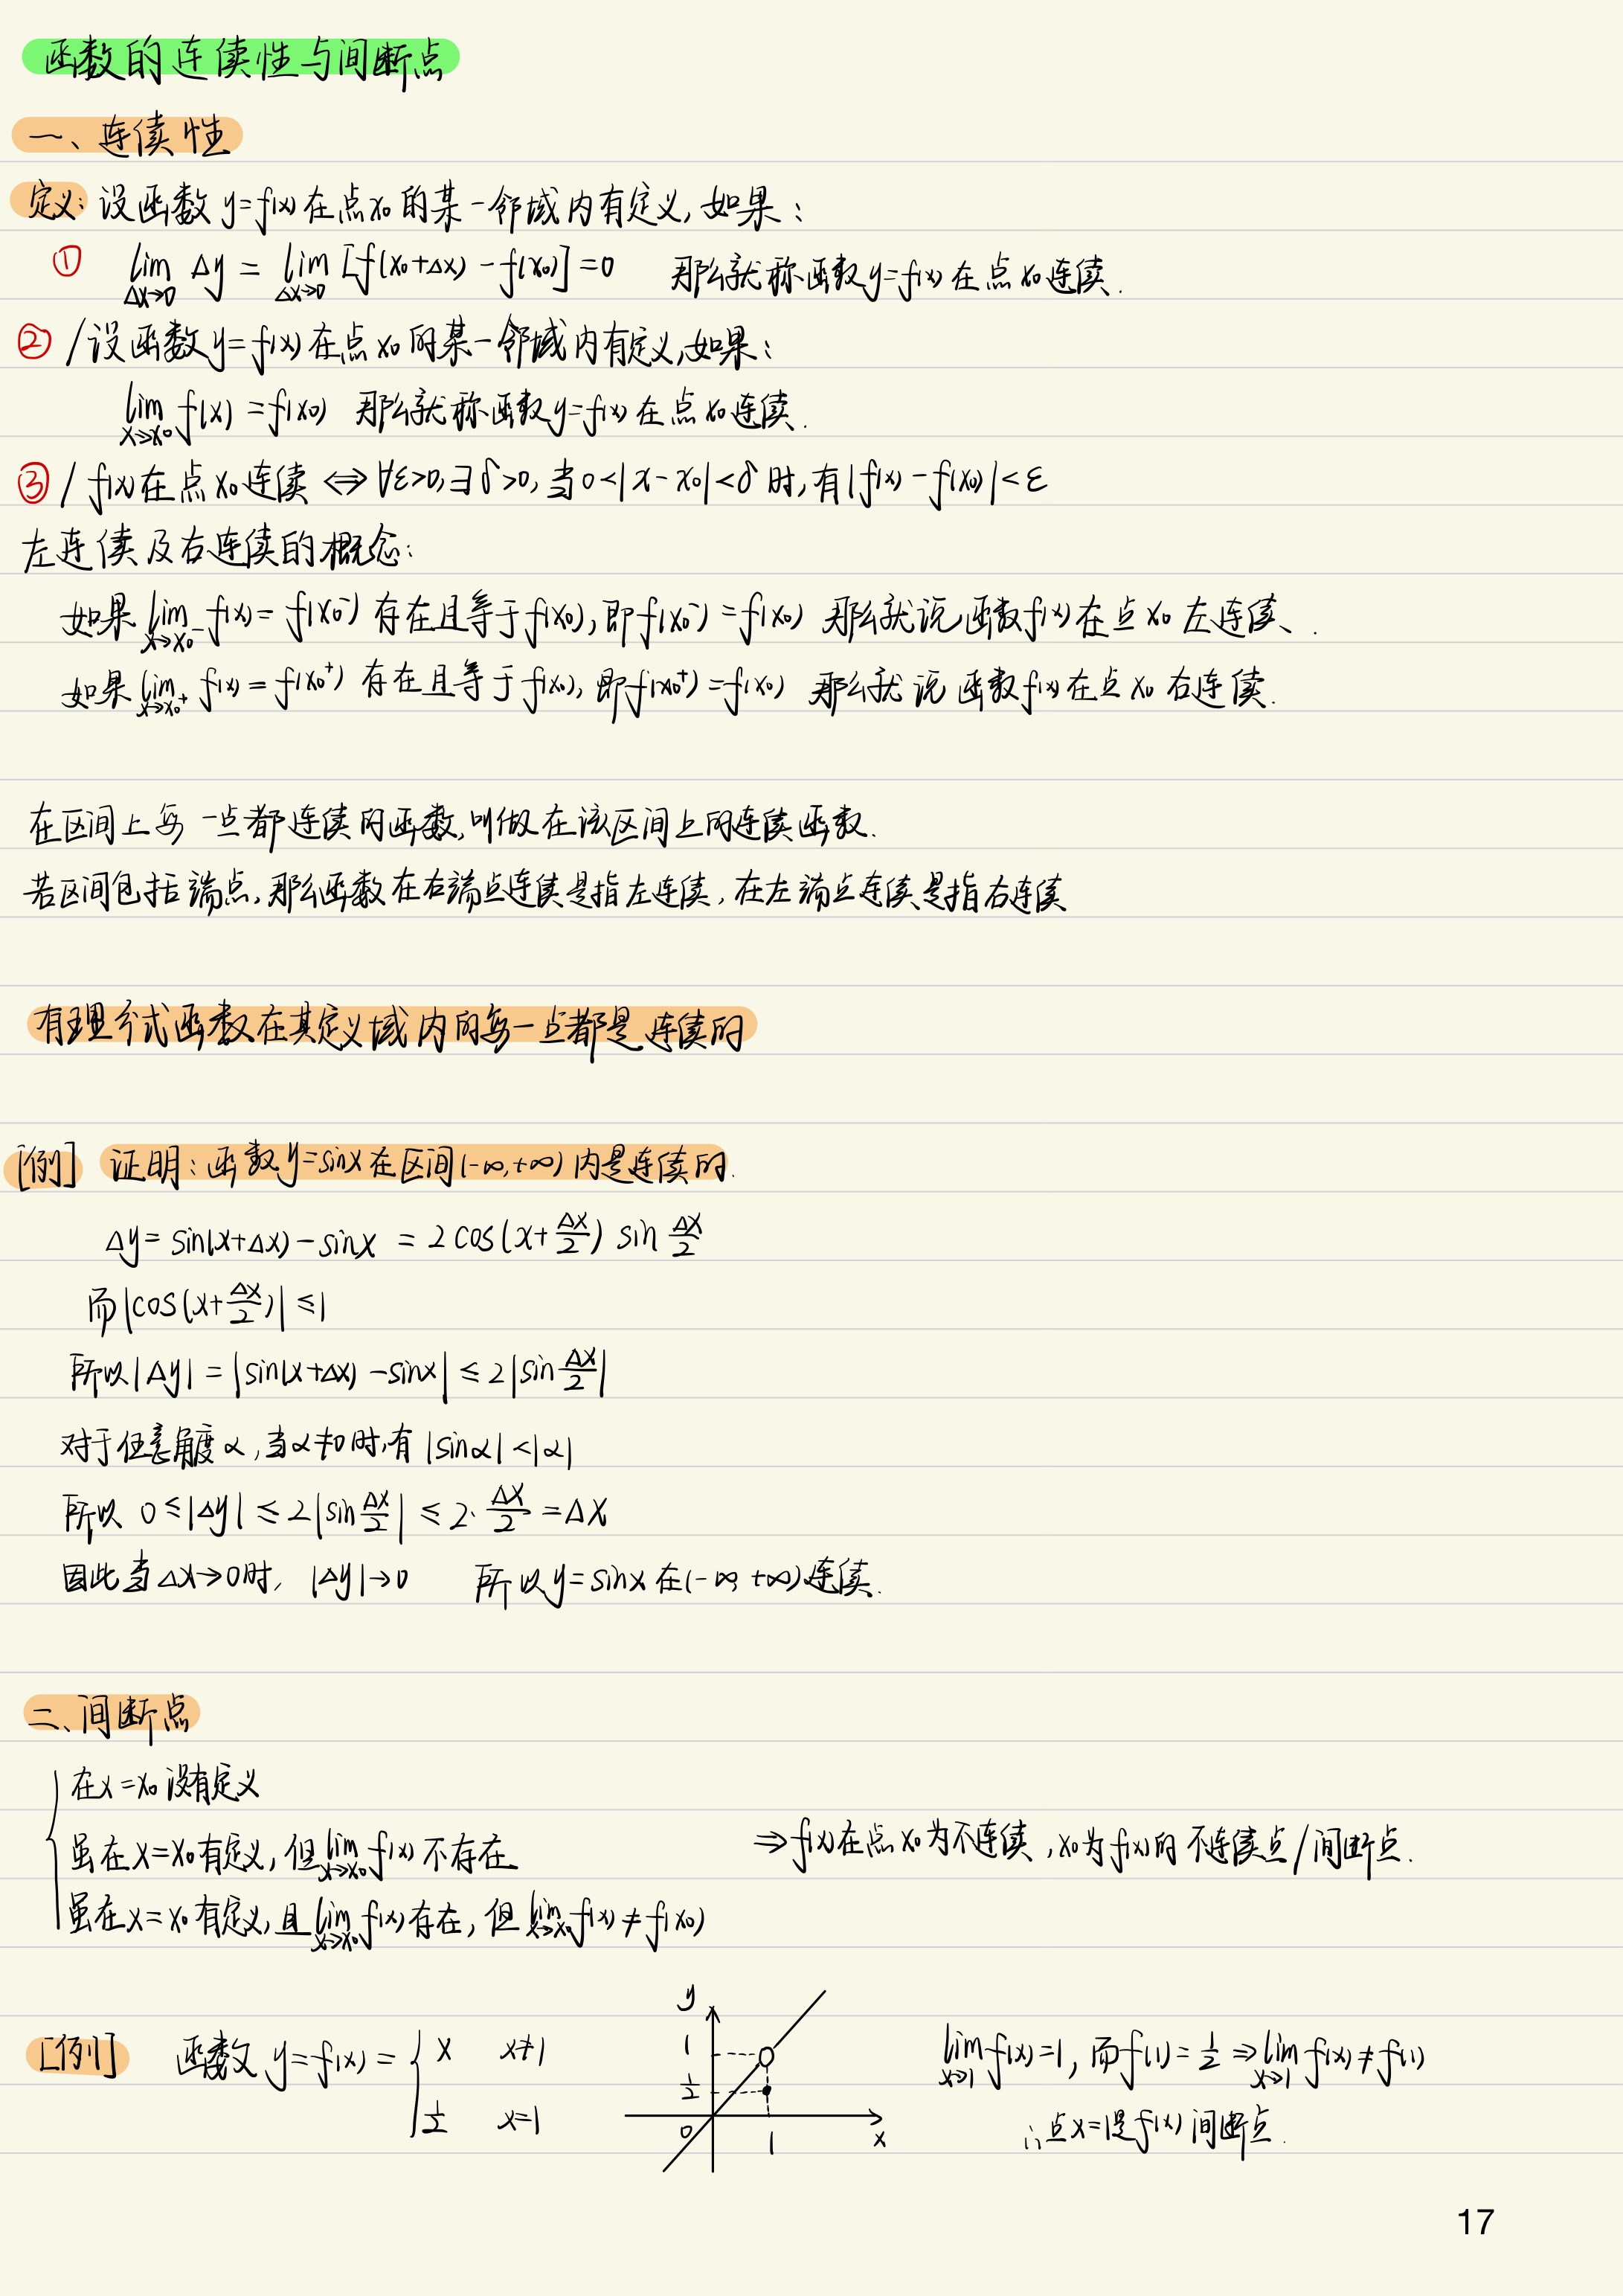 函数的连续性与间断点
一、连续性
定义: 设函数 y=f(x) 在点 x₀ 的某一邻域内有定义, 如果:
① lim_{Δx→0} Δy = lim_{Δx→0} [f(x₀+Δx) - f(x₀)] = 0 那么就称函数 y=f(x) 在点 x₀ 连续.
② / 设函数 y=f(x) 在点 x₀ 的某一邻域内有定义, 如果:
lim_{x→x₀} f(x) = f(x₀) 那么就称函数 y=f(x) 在点 x₀ 连续.
③ / f(x) 在点 x₀ 连续 ⟺ ∀ε>0, ∃δ>0, 当 0<|x-x₀|<δ 时, 有 |f(x)-f(x₀)|<ε
左连续及右连续的概念:
如果 lim_{x→x₀⁻} f(x) = f(x₀⁻) 存在且等于 f(x₀), 即 f(x₀⁻) = f(x₀) 那么就说函数 f(x) 在点 x₀ 左连续、.
如果 lim_{x→x₀⁺} f(x) = f(x₀⁺) 存在且等于 f(x₀), 即 f(x₀⁺) = f(x₀) 那么就说函数 f(x) 在点 x₀ 右连续.
在区间上每一点都连续的函数, 叫做在该区间上的连续函数.
若区间包括端点, 那么函数在右端点连续是指左连续, 在左端点连续是指右连续
有理分式函数在其定义域内的每一点都是连续的
[例] 证明: 函数 y=sinx 在区间 (-∞,+∞) 内是连续的.
Δy = sin(x+Δx) - sinx = 2cos(x+Δx/2) sin Δx/2
而 |cos(x+Δx/2)| ≤ 1
所以 |Δy| = |sin(x+Δx) - sinx| ≤ 2|sin Δx/2|
对于任意角度 α, 当 α≠0 时, 有 |sinα| < |α|
所以 0 ≤ |Δy| ≤ 2|sin Δx/2| ≤ 2·Δx/2 = Δx
因此当 Δx→0 时, |Δy|→0 所以 y=sinx 在 (-∞, +∞) 连续.
二、间断点
在 x=x₀ 没有定义
虽在 x=x₀ 有定义, 但 lim_{x→x₀} f(x) 不存在 ⇒ f(x) 在点 x₀ 为不连续, x₀ 为 f(x) 的不连续点/间断点.
虽在 x=x₀ 有定义, 且 lim_{x→x₀} f(x) 存在, 但 lim_{x→x₀} f(x) ≠ f(x₀)
[例] 函数 y=f(x) = { x x≠1
1/2 x=1
y
1
1/2
0
1
x
lim_{x→1} f(x) = 1, 而 f(1) = 1/2 ⇒ lim_{x→1} f(x) ≠ f(1)
∴ 点 x=1 是 f(x) 间断点.
17